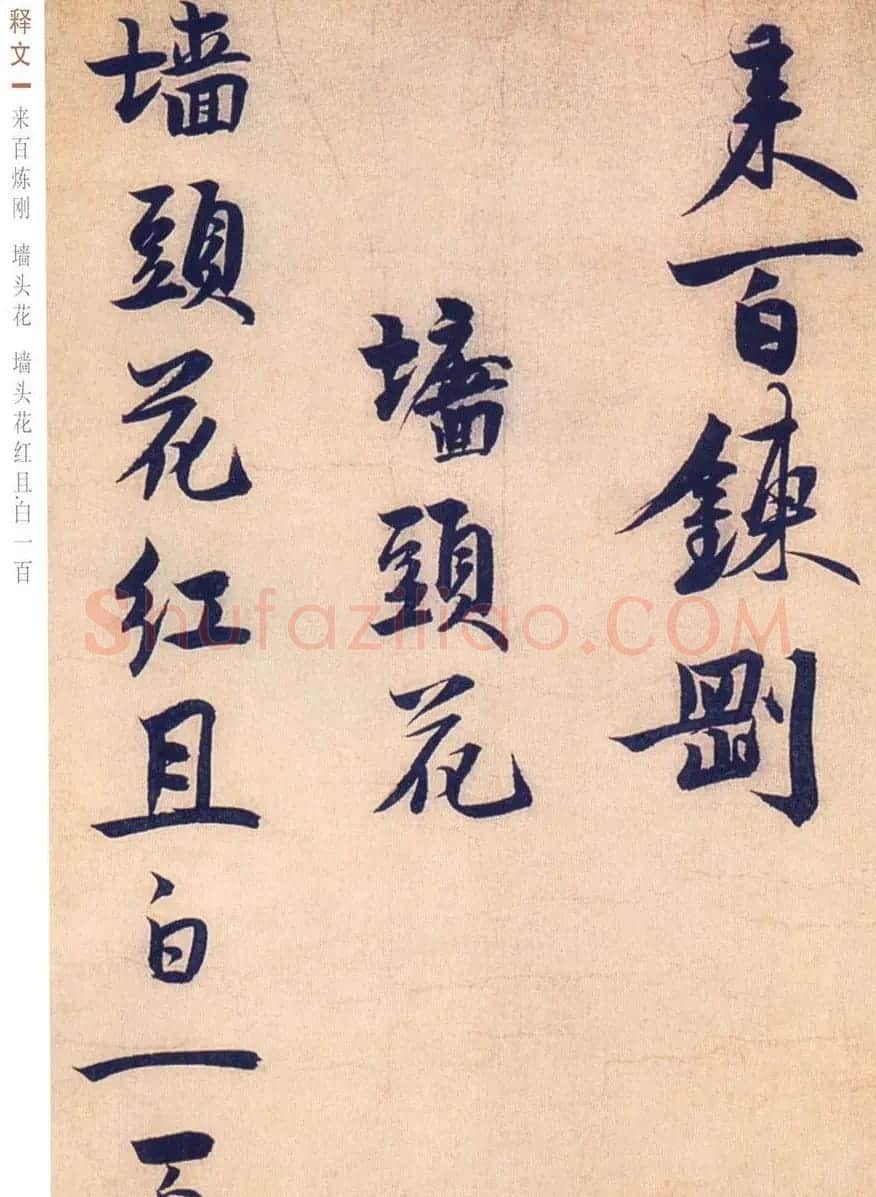 来百鍊剛
墙頭花
墙頭花红且白一百
释文
来百炼刚 墙头花 墙头花红且白一百
Shufaziliao.COM